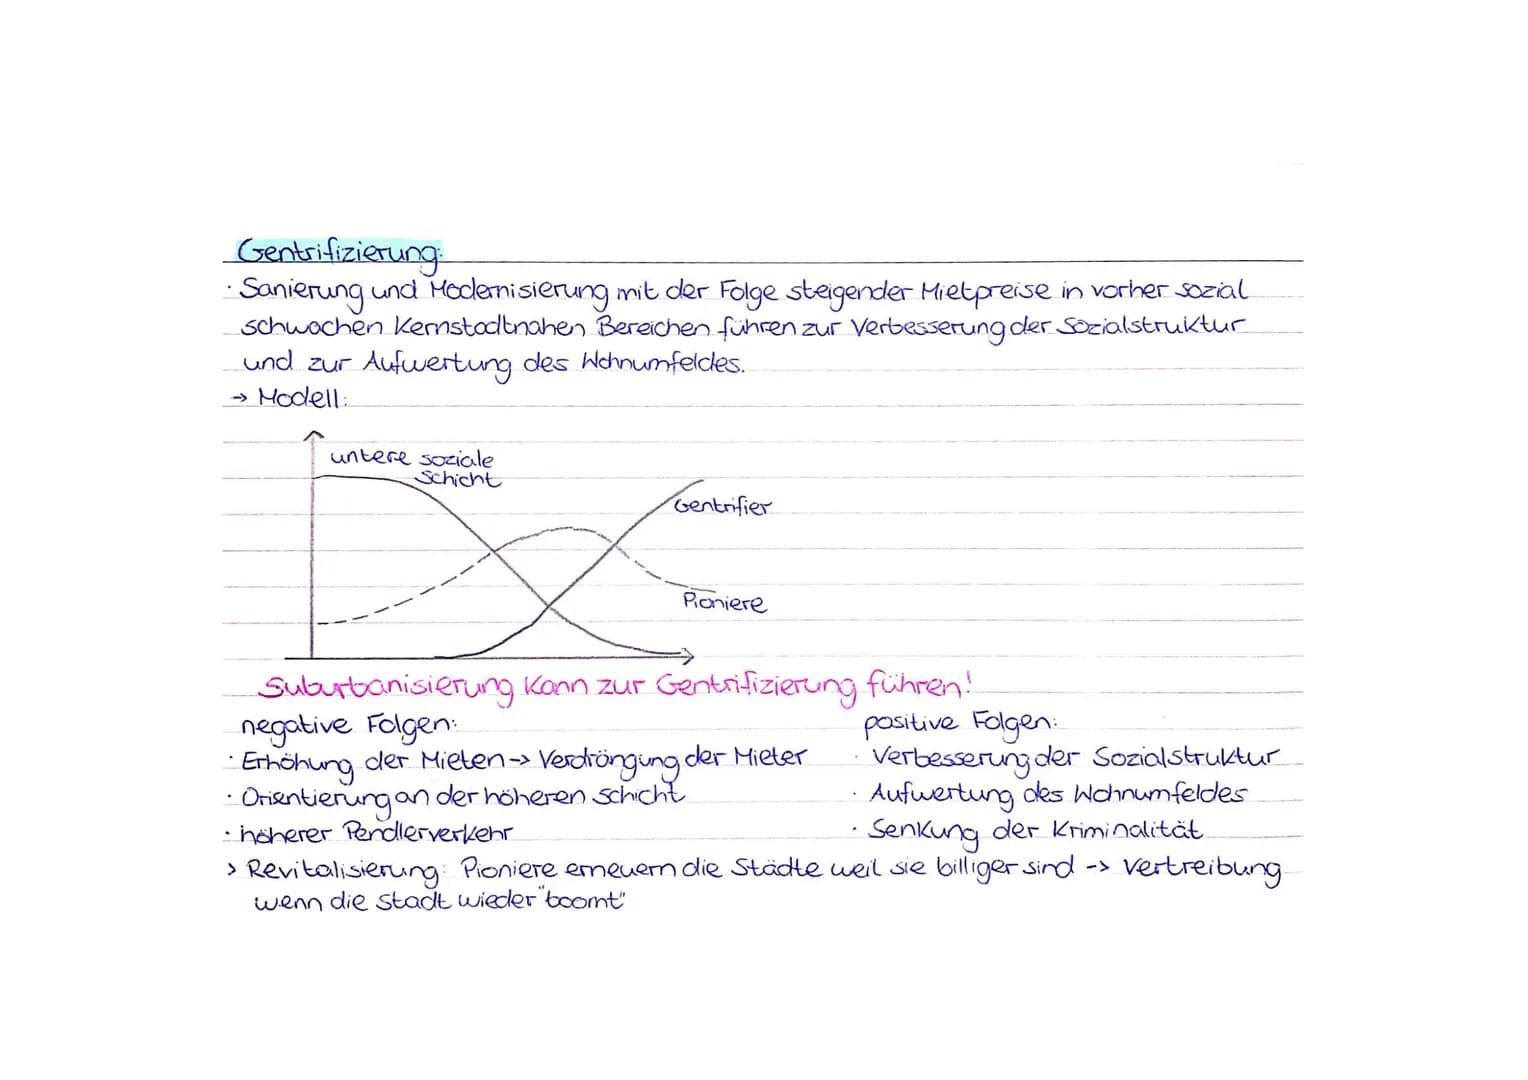 Gentrifizierung:
· Sanierung und Modernisierung mit der Folge steigender Mietpreise in vorher sozial
schwachen Kernstadtnahen Bereichen führen zur Verbesserung der Sozialstruktur
und zur Aufwertung des Wohnumfeldes.
→ Modell:
untere soziale
Schicht
Gentrifier
Pioniere
Suburbanisierung kann zur Gentrifizierung führen!
negative Folgen:
· Erhöhung der Mieten -> Verdrängung der Mieter
· Orientierung an der höheren Schicht
· höherer Pendlerverkehr
positive Folgen:
· Verbesserung der Sozialstruktur
· Aufwertung des Wohnumfeldes
· Senkung der Kriminalität
> Revitalisierung: Pioniere erneuern die Städte weil sie billiger sind -> Vertreibung
wenn die Stadt wieder "boomt"